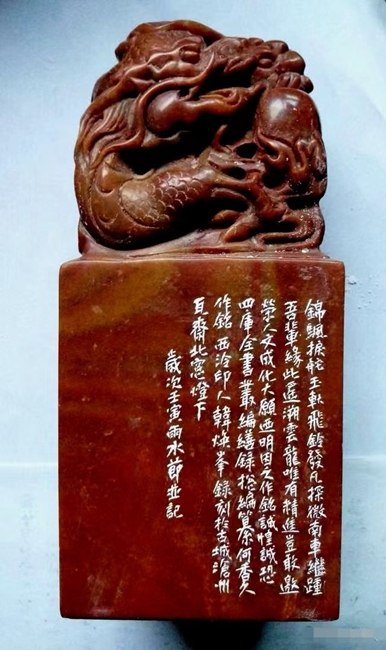 錦颿捩舵玉軑飛鈴發凡探微南車繼踵
吾輩緣此遥溯雲龍唯有精進豈敢邀
榮人文成化大願迺明因之作銘誠惶誠恐
四庫全書叢編續録總編纂宗何香久
作銘西泠印人韓煐峯録刻於古城滄州
瓦齋北窻燈下
歲次壬寅雨水節並記